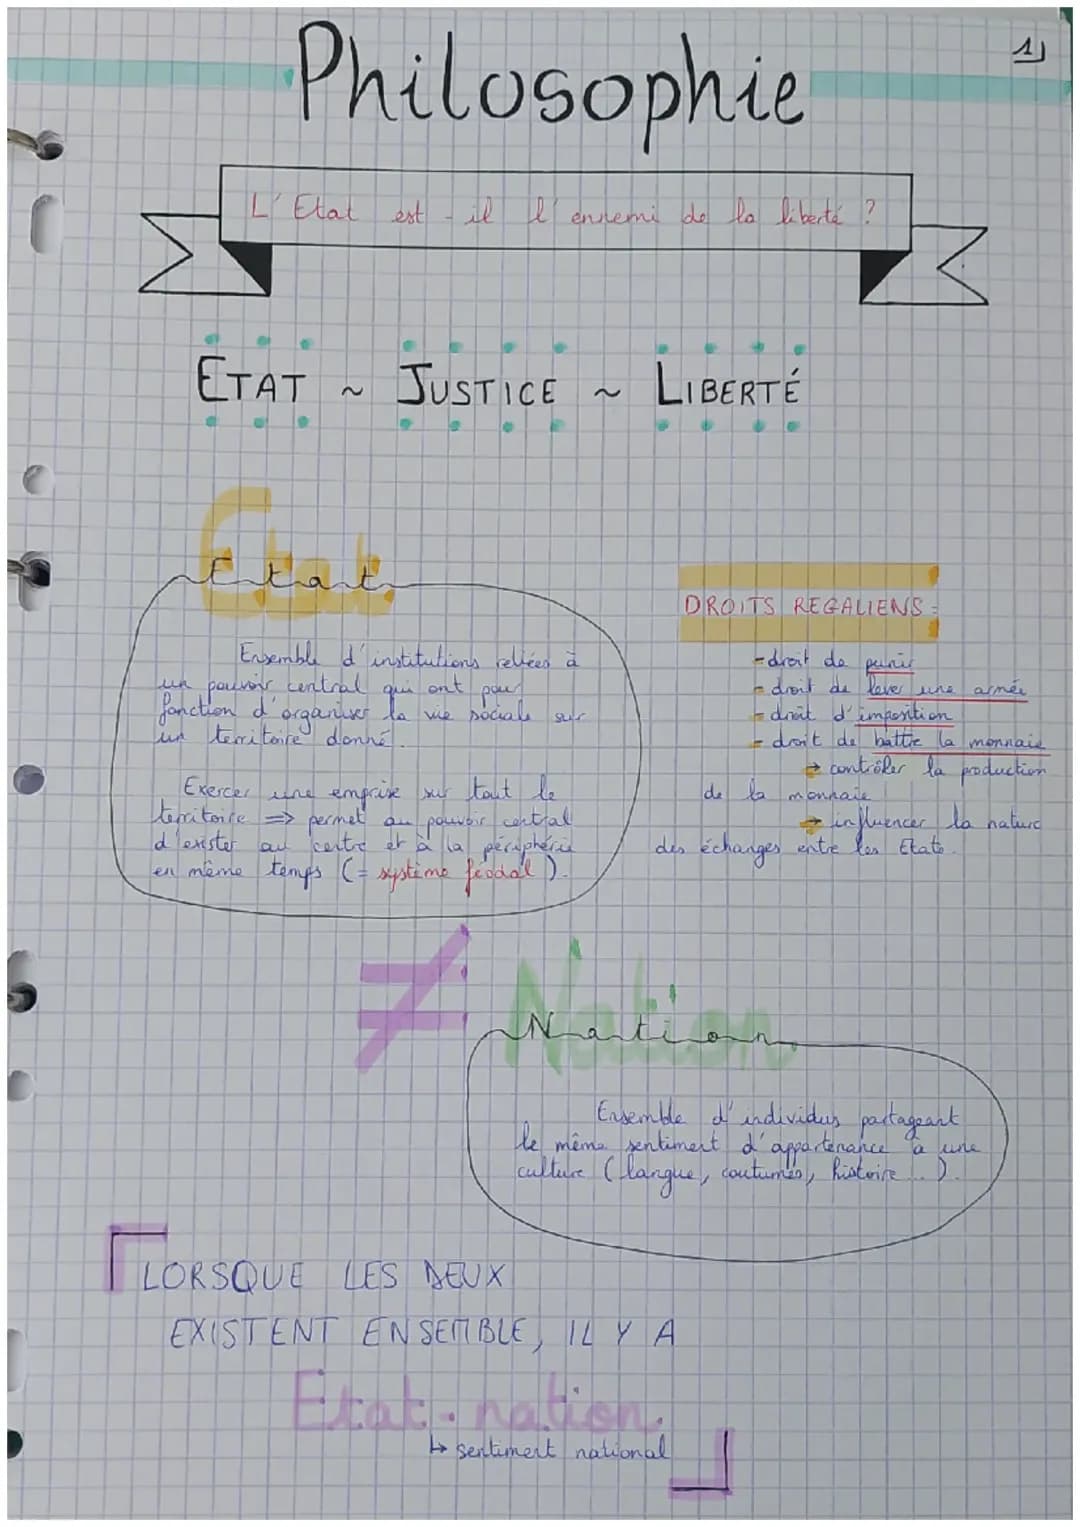 1)
Philosophie
L'Etat est-il l'ennemi de la liberté ?
ETAT ~ JUSTICE ~ LIBERTÉ
Etat
Ensemble d'institutions reliées à
un pouvoir central qui ont pour
fonction d'organiser la vie sociale sur
un territoire donné.
Exercer une emprise sur tout le
territoire => permet au pouvoir central
d'exister au centre et à la périphérie
en même temps (= système féodal).
DROITS REGALIENS :
- droit de punir
- droit de lever une armée
- droit d'imposition
- droit de battre la monnaie
→ contrôler la production
de la monnaie
→ influencer la nature
des échanges entre les Etats.
≠ Nation
Ensemble d'individus partageant
le même sentiment d'appartenance à une
culture (langue, coutumes, histoire...).
LORSQUE LES DEUX
EXISTENT ENSEMBLE, IL Y A
Etat-nation.
↳ sentiment national